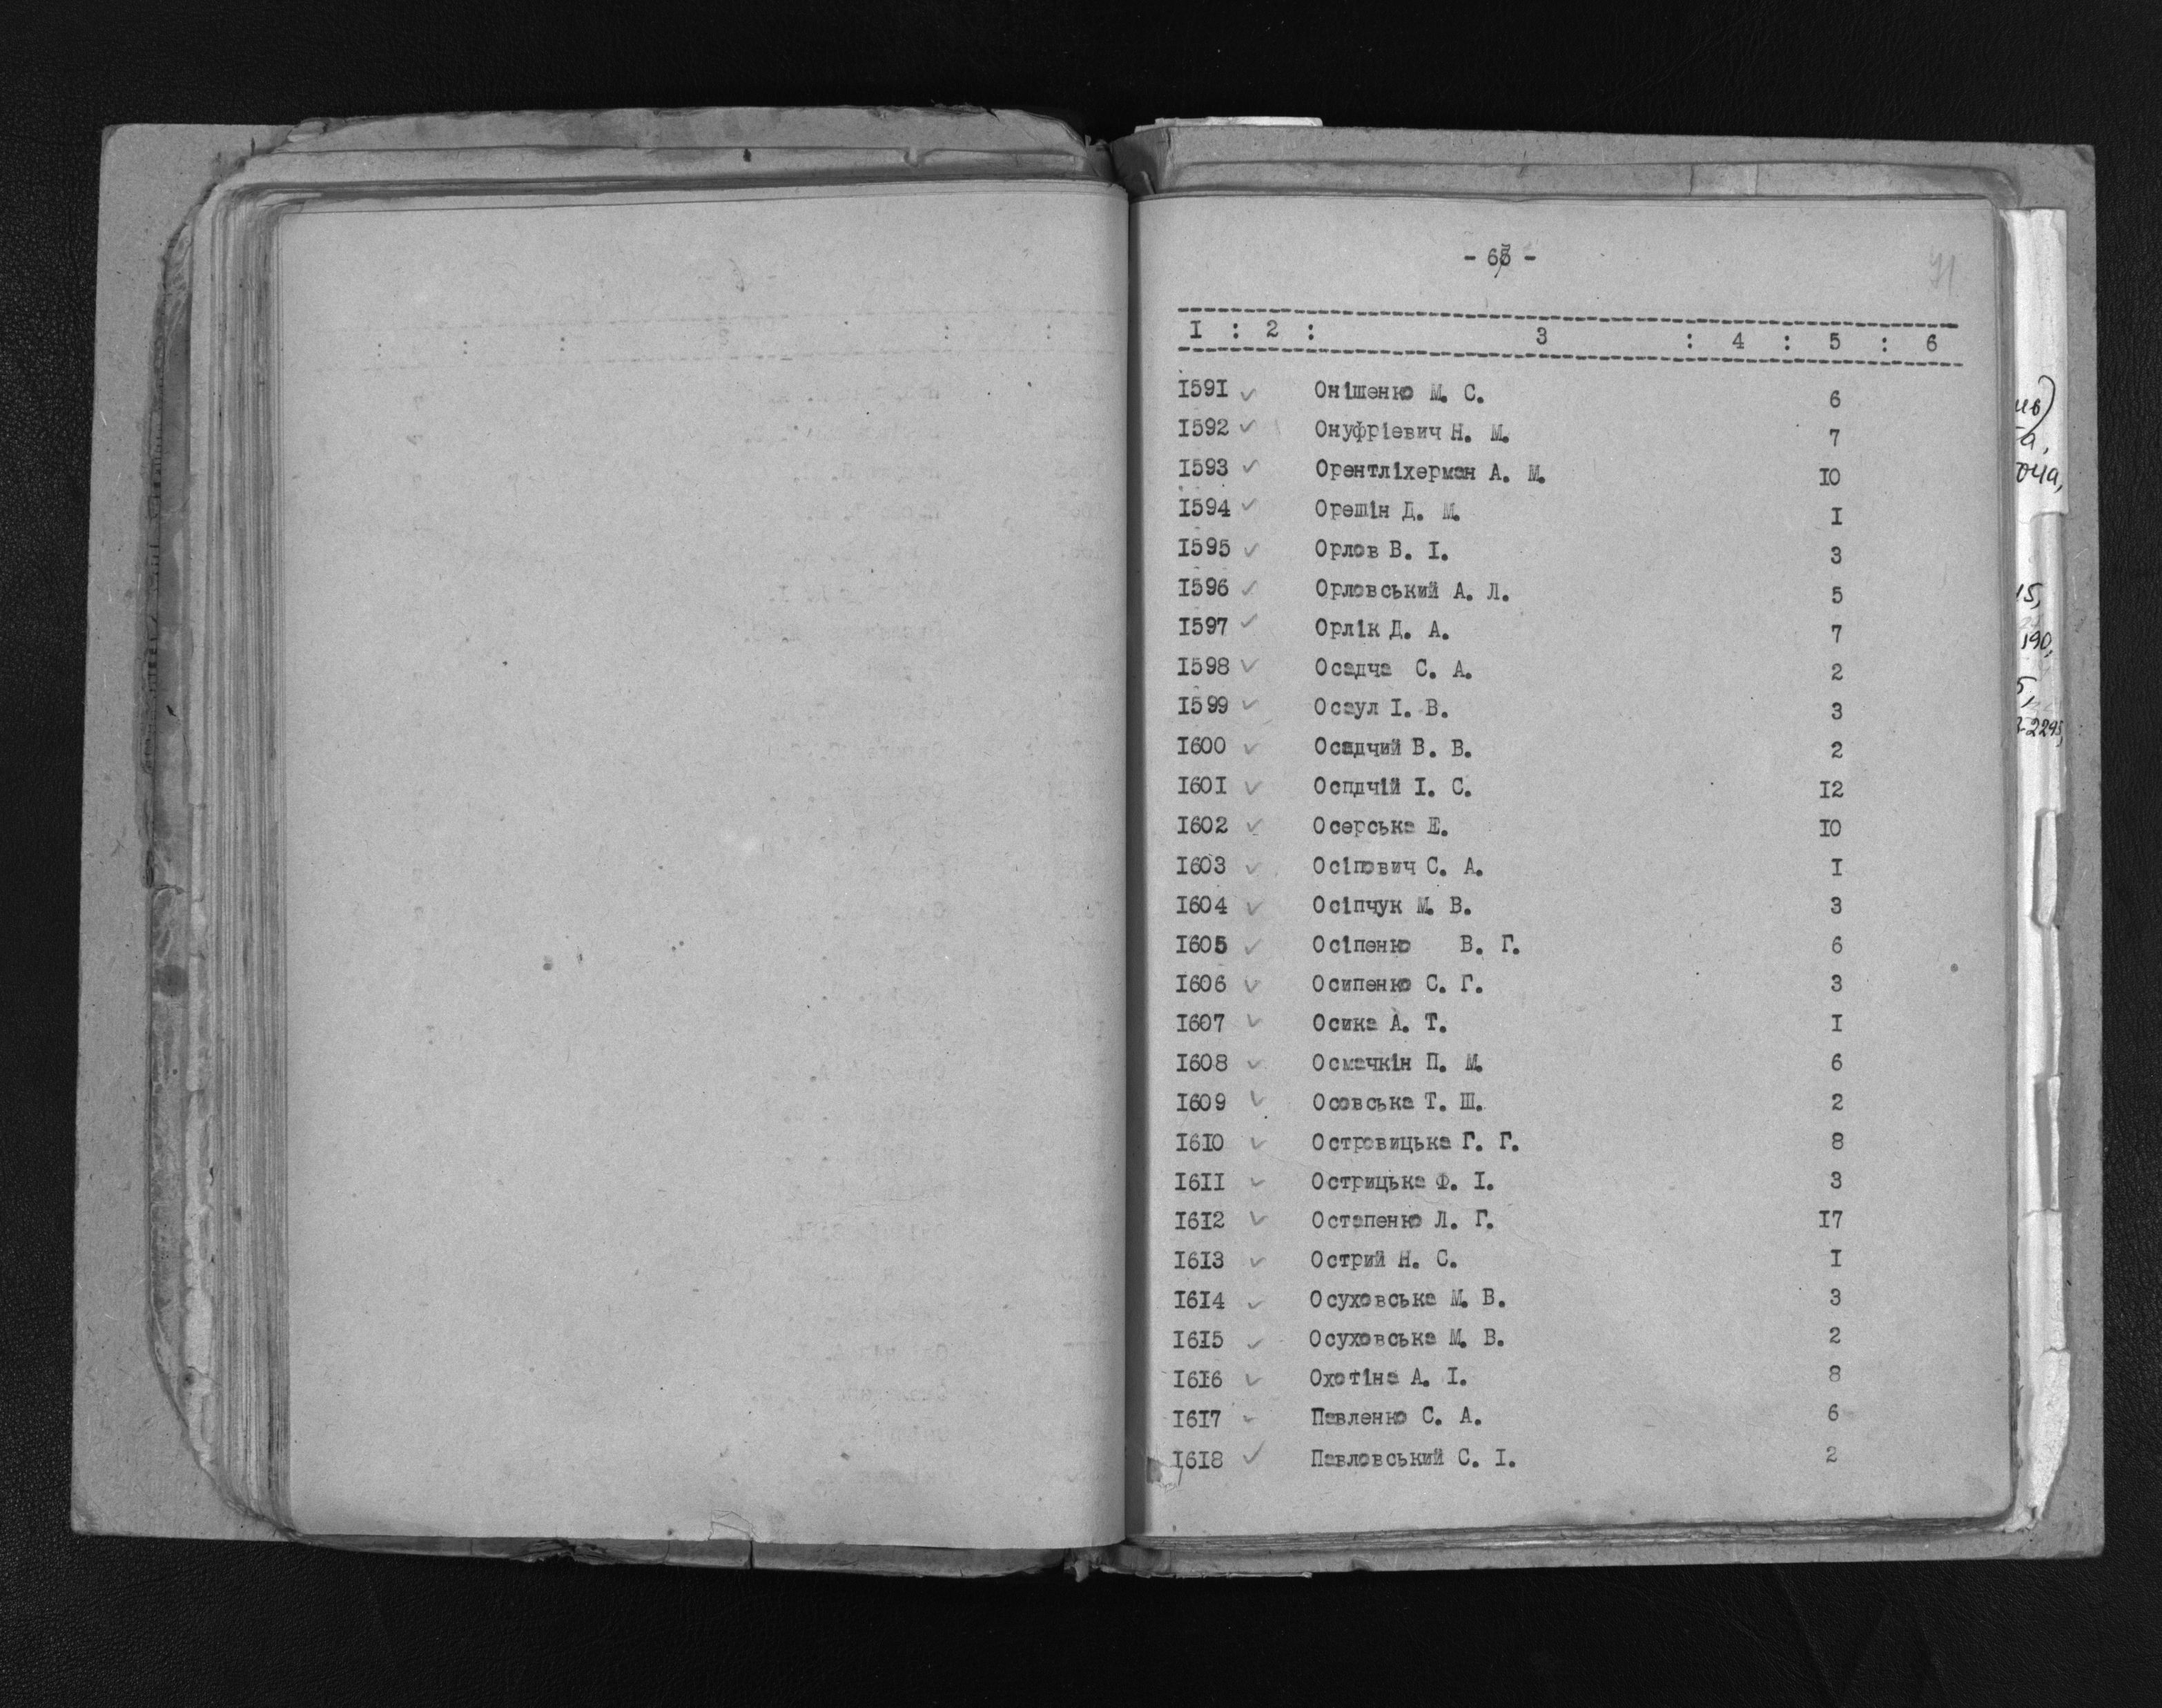 - 65 -
71
I : 2 : 3 : 4 : 5 : 6
I591 ✓ Онішенко М. С. 6
I592 ✓ Онуфріевич Н. М. 7
I593 ✓ Орентліхерман А. М. I0
I594 ✓ Орешін Д. М. I
I595 ✓ Орлов В. І. 3
I596 ✓ Орловський А. Л. 5
I597 ✓ Орлік Д. А. 7
I598 ✓ Осадча С. А. 2
I599 ✓ Осаул І. В. 3
I600 ✓ Осадчий В. В. 2
I60I ✓ Оспдчій І. С. I2
I602 ✓ Осерська Е. I0
I603 ✓ Осіпович С. А. I
I604 ✓ Осіпчук М. В. 3
I605 ✓ Осіпенко В. Г. 6
I606 ✓ Осипенко С. Г. 3
I607 ✓ Осика А. Т. I
I608 ✓ Осмачкін П. М. 6
I609 ✓ Осовська Т. Ш. 2
I6I0 ✓ Островицька Г. Г. 8
I6II ✓ Острицька Ф. І. 3
I6I2 ✓ Остапенко Л. Г. I7
I6I3 ✓ Острий Н. С. I
I6I4 ✓ Осуховська М. В. 3
I6I5 ✓ Осуховська М. В. 2
I6I6 ✓ Охотіна А. І. 8
I6I7 ✓ Павленко С. А. 6
I6I8 ✓ Павловський С. І. 2
15,
190,
5,
-2295,